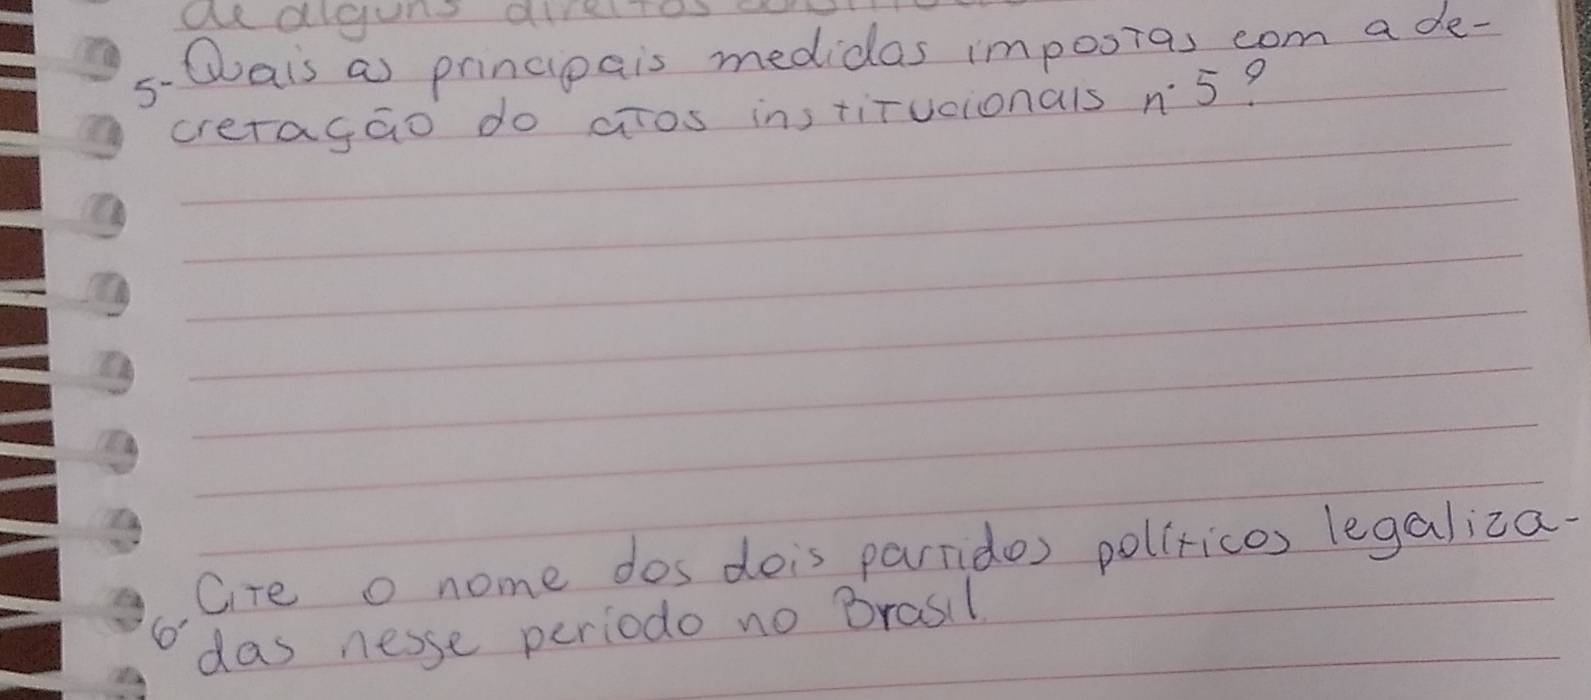 de alguns direitos
5- Quais as principais medidas impostas com a de-
cretação do atos institucionais n° 5?
6- Cite o nome dos dois partidos políticos legaliza-
das nesse periodo no Brasil.